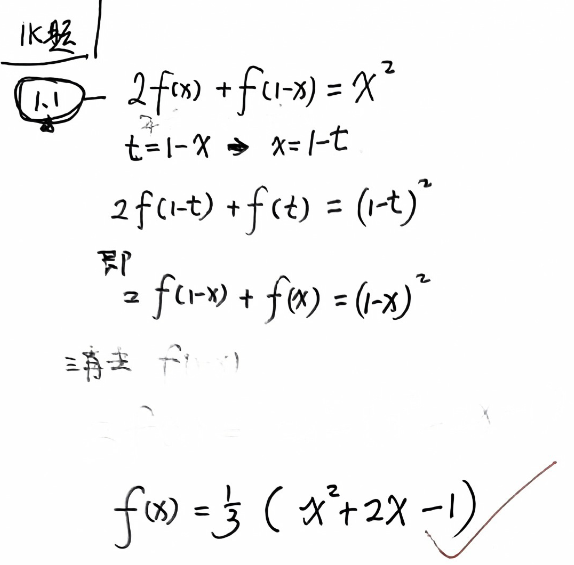 1K题
1.1 — 2f(x) + f(1-x) = x²
t = 1-x → x = 1-t
2f(1-t) + f(t) = (1-t)²
即
2f(1-x) + f(x) = (1-x)²
消去
f(x) = 1/3 ( x² + 2x - 1 ) ✓